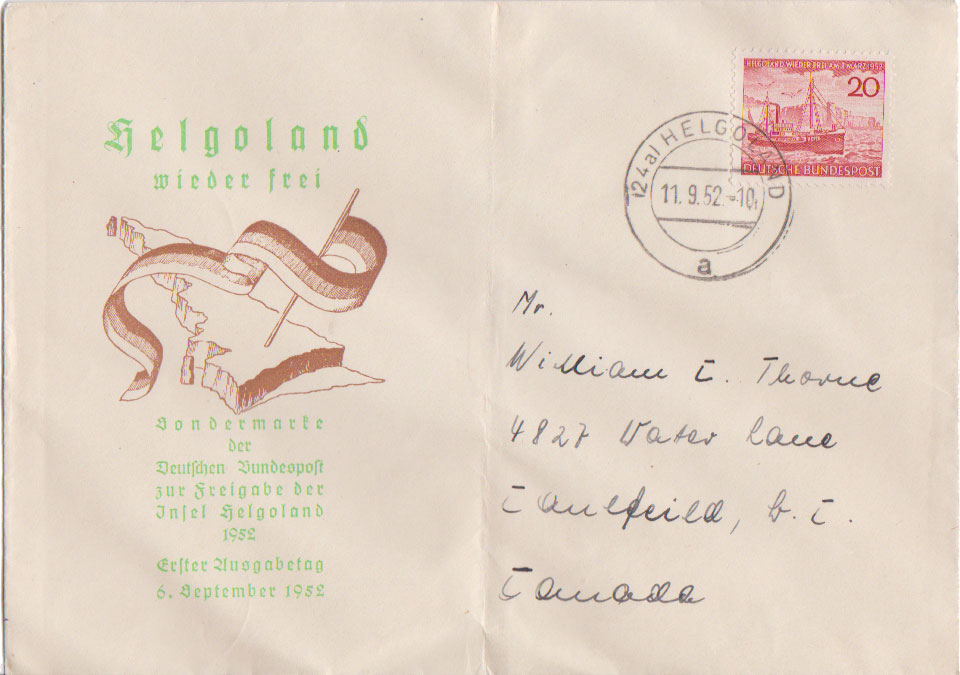 Helgoland
wieder frei
Sondermarke
der
Deutschen Bundespost
zur Freigabe der
Insel Helgoland
1952
Erster Ausgabetag
6. September 1952
HELGOLAND WIEDER FREI AM 1. MÄRZ 1952
20
DEUTSCHE BUNDESPOST
(24a) HELGOLAND
11.9.52.-10
a
Mr.
William C. Thorne
4827 Water Lane
Caulfeild, B.C.
Canada